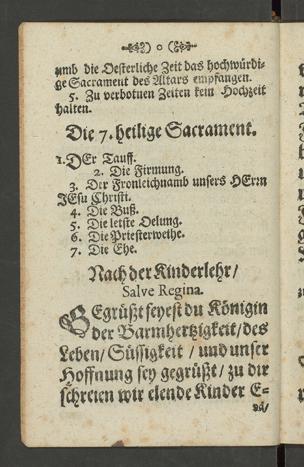 o
umb die Oesterliche Zeit das hochwürdi-
ge Sacrament des Altars empfangen.
5. Zu verbotnen Zeiten kein Hochzeit
halten.
Die 7. heilige Sacrament.
1. DEr Tauff.
2. Die Firmung.
3. Der Fronleichnamb unsers HErrn
JEsu Christi.
4. Die Buß.
5. Die letste Oelung.
6. Die Priesterweihe.
7. Die Ehe.
Nach der Kinderlehr/
Salve Regina.
BEgrüßt seyest du Königin
der Barmhertzigkeit/des
Leben/ Süssigkeit / und unser
Hoffnung sey gegrüßt/ zu dir
schreien wir elende Kinder E-
vä/